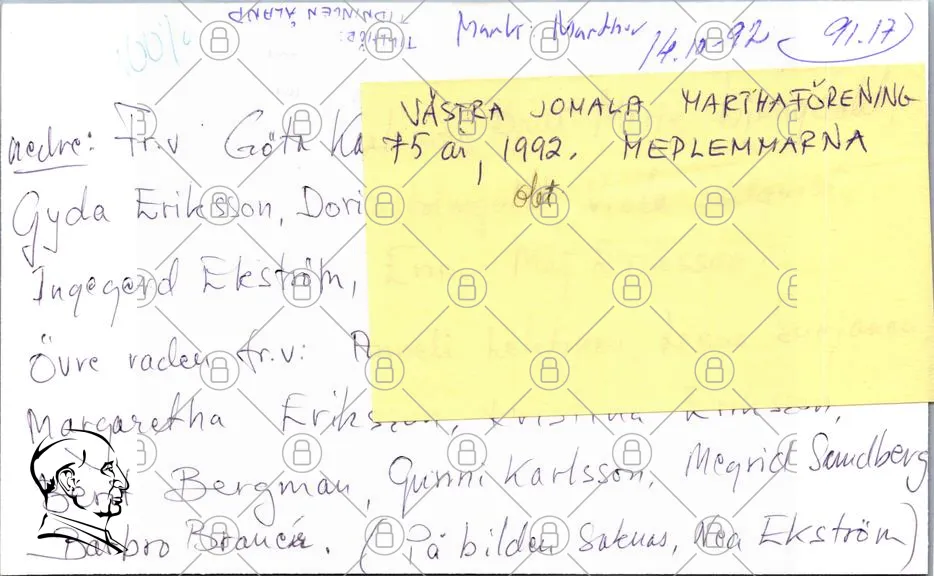 TILLHÖR:
TIDNINGEN ÅLAND
Mark: Marthor
14.10-92 (91.17)
VÄSTRA JOMALA MARTHAFÖRENING
75 år, 1992. MEDLEMMARNA
nedre: Fr.v Göta Ka
Gyda Eriksson, Dori
Ingegerd Ekström,
Övre raden fr.v:
Margaretha Eriksson,
Bergman, Gunni Karlsson, Megrid Sundberg
Barbro (På bilden saknas, Nea Ekström)